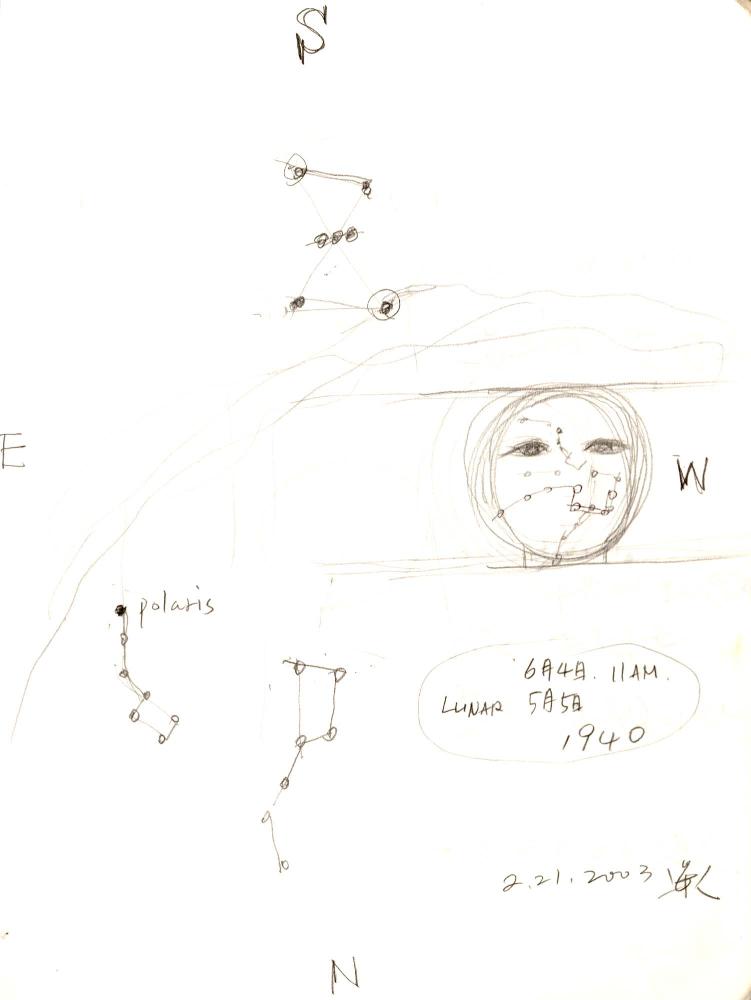 S
E
W
polaris
6月4日. 11AM.
LUNAR 5月5日
1940
2.21.2003
N